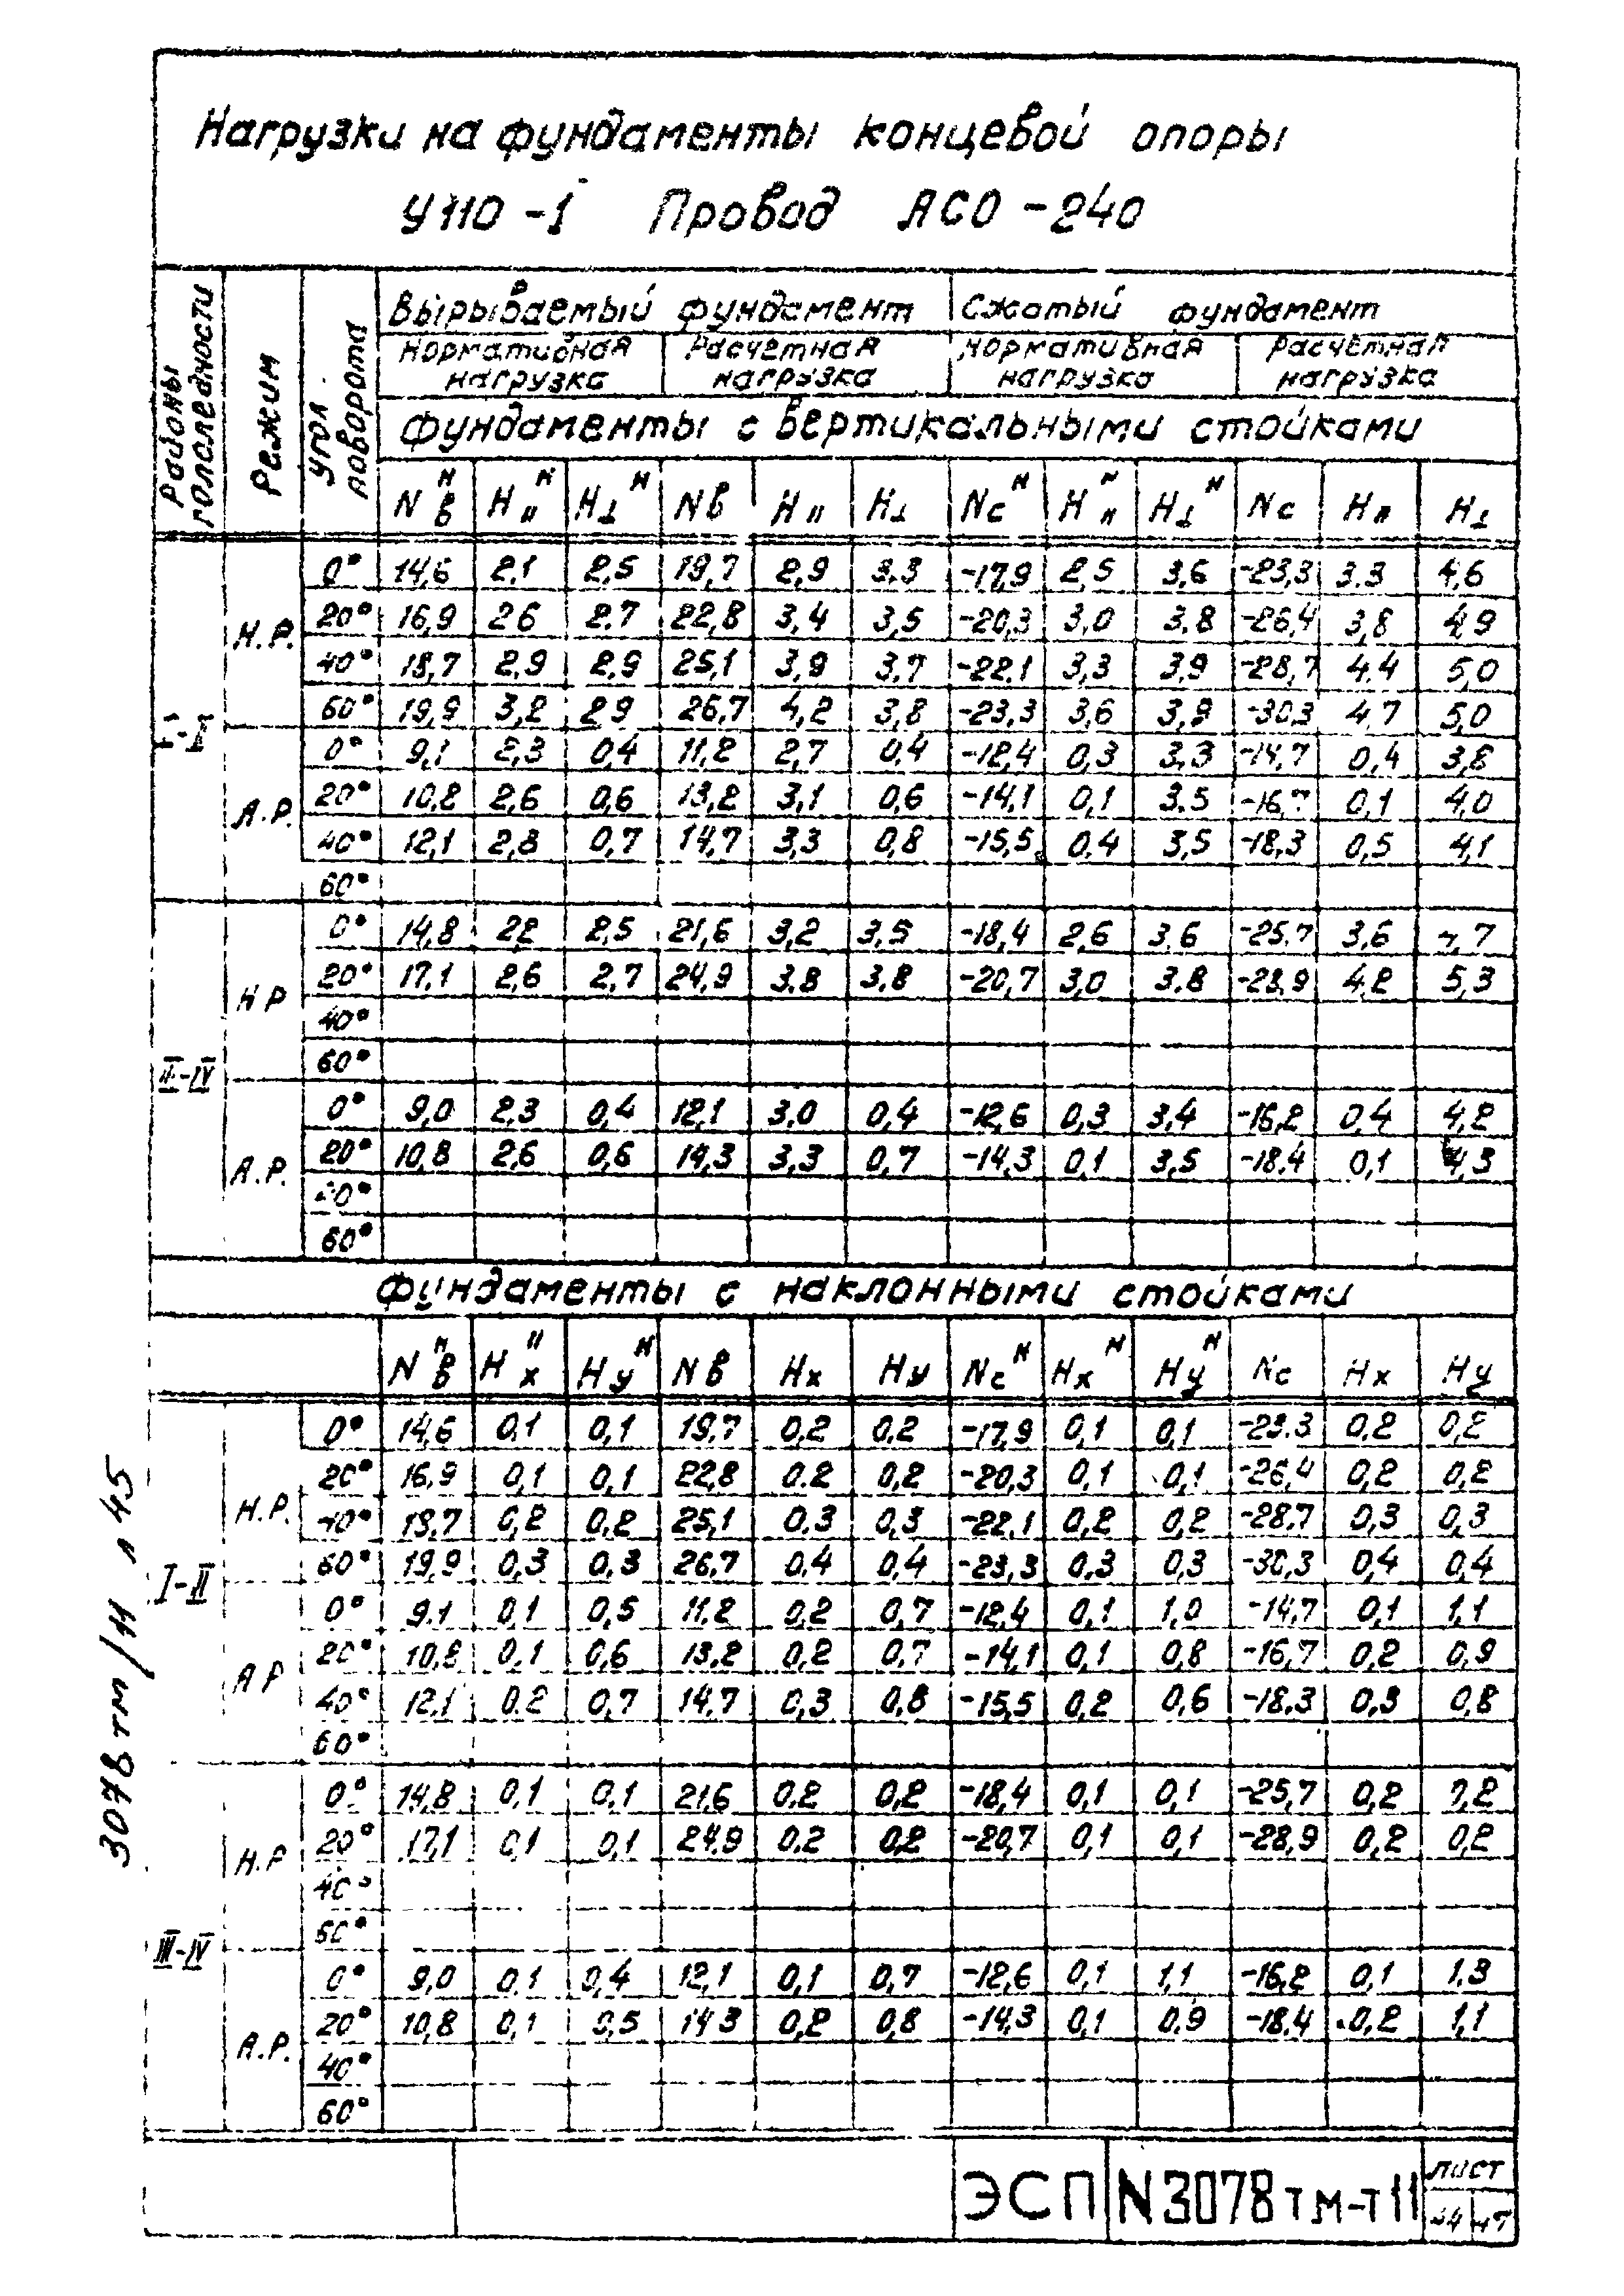 Нагрузки на фундаменты концевой опоры
У110-I Провод АСО-240
Районы гололедности Режим Угол поворота
Вырываемый фундамент Сжатый фундамент
Нормативная нагрузка Расчетная нагрузка Нормативная нагрузка Расчетная нагрузка
Фундаменты с вертикальными стойками
Nв^н H॥^н H⊥^н Nв H॥ H⊥ Nс^н H॥^н H⊥^н Nс H॥ H⊥
I-II
Н.Р.
0° 14,6 2,1 2,5 19,7 2,9 3,3 -17,9 2,5 3,6 -23,3 3.3 4,6
20° 16,9 26 2,7 22,8 3,4 3,5 -20,3 3,0 3.8 -26,4 3,8 4,9
40° 18,7 2,9 2,9 25,1 3,9 3,7 -22,1 3,3 3,9 -28,7 4.4 5,0
60° 19,9 3,2 2,9 26,7 4,2 3,8 -23,3 3,6 3,9 -30,3 4,7 5,0
А.Р.
0° 9,1 2,3 0,4 11,2 2,7 0,4 -12,4 0,3 3,3 -14,7 0,4 3,8
20° 10,8 2,6 0,6 13,2 3,1 0,6 -14,1 0,1 3.5 -16,7 0,1 4,0
40° 12,1 2,8 0,7 14,7 3,3 0,8 -15,5 0,4 3,5 -18,3 0,5 4,1
60°
III-IV
Н Р
0° 14,8 22 2,5 21,6 3,2 3,5 -18,4 2,6 3,6 -25,7 3,6 4,7
20° 17,1 2,6 2,7 24,9 3.8 3.8 -20,7 3,0 3.8 -28,9 4,2 5,3
40°
60°
А.Р.
0° 9,0 2,3 0,4 12,1 3,0 0,4 -12,6 0,3 3,4 -16,2 0,4 4,2
20° 10,8 2,6 0,6 14,3 3,3 0,7 -14,3 0,1 3,5 -18,4 0,1 4,3
40°
60°
Фундаменты с наклонными стойками
Nв^н Hх^н Hу^н Nв Hх Hу Nс^н Hх^н Hу^н Nс Hх Hу
I-II
Н.Р.
0° 14,6 0,1 0,1 19,7 0,2 0,2 -17,9 0,1 0,1 -23.3 0,2 0,2
20° 16,9 0,1 0,1 22,8 0.2 0,2 -20,3 0,1 0,1 -26,4 0,2 0,2
40° 18,7 0,2 0,2 25,1 0.3 0,3 -22,1 0,2 0,2 -28,7 0,3 0,3
60° 19,9 0,3 0,3 26,7 0,4 0,4 -23,3 0,3 0,3 -30,3 0,4 0,4
А Р
0° 9.1 0,1 0,5 11,2 0,2 0,7 -12,4 0,1 1,0 -14,7 0,1 1,1
20° 10,8 0,1 0,6 13,2 0,2 0,7 -14,1 0,1 0,8 -16,7 0,2 0,9
40° 12,1 0.2 0,7 14,7 0,3 0,8 -15,5 0,2 0,6 -18,3 0,3 0,8
60°
III-IV
Н.Р
0° 14,8 0,1 0,1 21,6 0.2 0,2 -18,4 0,1 0,1 -25,7 0,2 0,2
20° 17,1 0,1 0,1 24,9 0,2 0,2 -20,7 0,1 0,1 -28,9 0,2 0,2
40°
60°
А.Р.
0° 9,0 0,1 0,4 12,1 0,1 0,7 -12,6 0,1 1,1 -16,2 0,1 1,3
20° 10,8 0,1 0,5 14 3 0,2 0,8 -14,3 0,1 0,9 -18,4 0,2 1,1
40°
60°
3078тм/11 л 45
ЭСП N3078тм-т11 лист